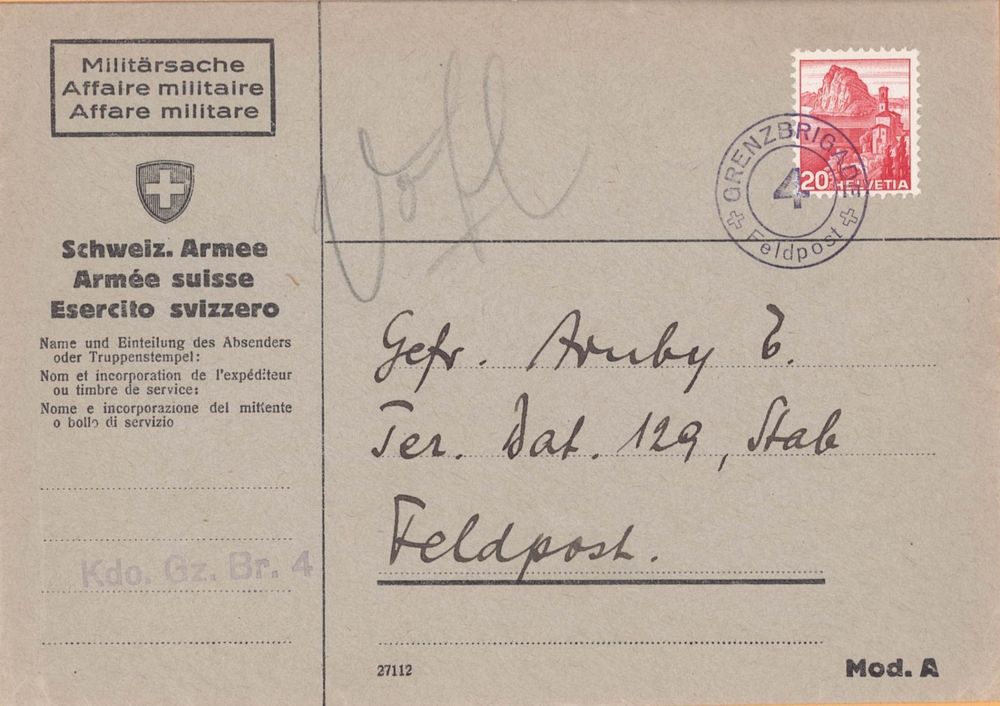 Militärsache
Affaire militaire
Affare militare
Schweiz. Armee
Armée suisse
Esercito svizzero
Name und Einteilung des Absenders
oder Truppenstempel:
Nom et incorporation de l'expéditeur
ou timbre de service:
Nome e incorporazione del mittente
o bollo di servizio
Kdo. Gz. Br. 4
GRENZBRIGADE
4
Feldpost
20 HELVETIA
Gefr. E.
Ter. Bat. 129, Stab
Feldpost.
27112
Mod. A